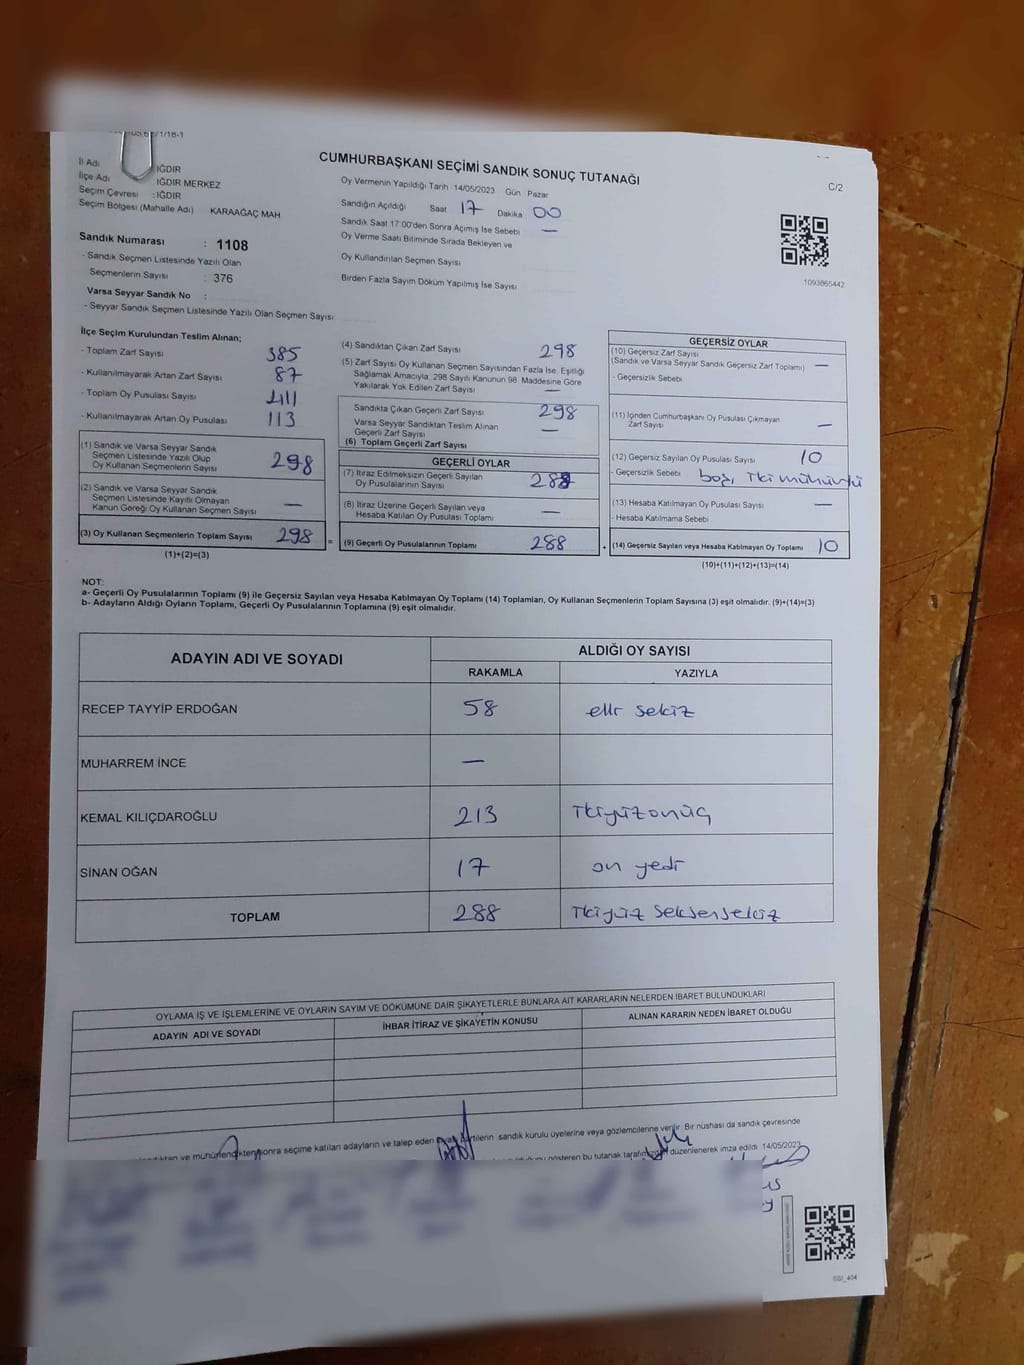 CUMHURBAŞKANI SEÇİMİ SANDIK SONUÇ TUTANAĞI
C/2
İl Adı : IĞDIR
İlçe Adı : IĞDIR MERKEZ
Seçim Çevresi : IĞDIR
Seçim Bölgesi (Mahalle Adı) KARAAĞAÇ MAH
Oy Vermenin Yapıldığı Tarih 14/05/2023 Gün Pazar
Sandığın Açıldığı Saat 17 Dakika 00
Sandık Saat 17:00'den Sonra Açımış İse Sebebi —
Oy Verme Saati Bitiminde Sırada Bekleyen ve
Oy Kullandırılan Seçmen Sayısı
Birden Fazla Sayım Döküm Yapılmış İse Sayısı
1093865442
Sandık Numarası : 1108
- Sandık Seçmen Listesinde Yazılı Olan
Seçmenlerin Sayısı : 376
Varsa Seyyar Sandık No :
- Seyyar Sandık Seçmen Listesinde Yazılı Olan Seçmen Sayısı
İlçe Seçim Kurulundan Teslim Alınan;
- Toplam Zarf Sayısı 385
- Kullanılmayarak Artan Zarf Sayısı 87
- Toplam Oy Pusulası Sayısı 411
- Kullanılmayarak Artan Oy Pusulası 113
(1) Sandık ve Varsa Seyyar Sandık
Seçmen Listesinde Yazılı Olup
Oy Kullanan Seçmenlerin Sayısı 298
(2) Sandık ve Varsa Seyyar Sandık
Seçmen Listesinde Kayıtlı Olmayan
Kanun Gereği Oy Kullanan Seçmen Sayısı —
(3) Oy Kullanan Seçmenlerin Toplam Sayısı 298
(1)+(2)=(3)
(4) Sandıktan Çıkan Zarf Sayısı 298
(5) Zarf Sayısı Oy Kullanan Seçmen Sayısından Fazla İse, Eşitliği
Sağlamak Amacıyla, 298 Sayılı Kanunun 98. Maddesine Göre
Yakılarak Yok Edilen Zarf Sayısı —
Sandıkta Çıkan Geçerli Zarf Sayısı 298
Varsa Seyyar Sandıktan Teslim Alınan
Geçerli Zarf Sayısı —
(6) Toplam Geçerli Zarf Sayısı
GEÇERLİ OYLAR
(7) İtiraz Edilmeksizin Geçerli Sayılan
Oy Pusulalarının Sayısı 288
(8) İtiraz Üzerine Geçerli Sayılan veya
Hesaba Katılan Oy Pusulası Toplamı —
= (9) Geçerli Oy Pusulalarının Toplamı 288
GEÇERSİZ OYLAR
(10) Geçersiz Zarf Sayısı
(Sandık ve Varsa Seyyar Sandık Geçersiz Zarf Toplamı) —
- Geçersizlik Sebebi
(11) İçinden Cumhurbaşkanı Oy Pusulası Çıkmayan
Zarf Sayısı —
(12) Geçersiz Sayılan Oy Pusulası Sayısı 10
- Geçersizlik Sebebi boş, iki mühürlü
(13) Hesaba Katılmayan Oy Pusulası Sayısı —
- Hesaba Katılmama Sebebi
+ (14) Geçersiz Sayılan veya Hesaba Katılmayan Oy Toplamı 10
(10)+(11)+(12)+(13)=(14)
NOT:
a- Geçerli Oy Pusulalarının Toplamı (9) ile Geçersiz Sayılan veya Hesaba Katılmayan Oy Toplamı (14) Toplamları, Oy Kullanan Seçmenlerin Toplam Sayısına (3) eşit olmalıdır. (9)+(14)=(3)
b- Adayların Aldığı Oyların Toplamı, Geçerli Oy Pusulalarının Toplamına (9) eşit olmalıdır.
ADAYIN ADI VE SOYADI ALDIĞI OY SAYISI
RAKAMLA YAZIYLA
RECEP TAYYİP ERDOĞAN 58 elli sekiz
MUHARREM İNCE —
KEMAL KILIÇDAROĞLU 213 ikiyüzonüç
SİNAN OĞAN 17 on yedi
TOPLAM 288 ikiyüz seksensekiz
OYLAMA İŞ VE İŞLEMLERİNE VE OYLARIN SAYIM VE DÖKÜMÜNE DAİR ŞİKAYETLERLE BUNLARA AİT KARARLARIN NELERDEN İBARET BULUNDUKLARI
ADAYIN ADI VE SOYADI İHBAR İTİRAZ VE ŞİKAYETİN KONUSU ALINAN KARARIN NEDEN İBARET OLDUĞU
sonra seçime katılan adayların ve talep eden siyasi partilerin sandık kurulu üyelerine veya gözlemcilerine verilir. Bir nüshası da sandık çevresinde
gösteren bu tutanak tarafımızdan düzenlenerek imza edildi 14/05/2023